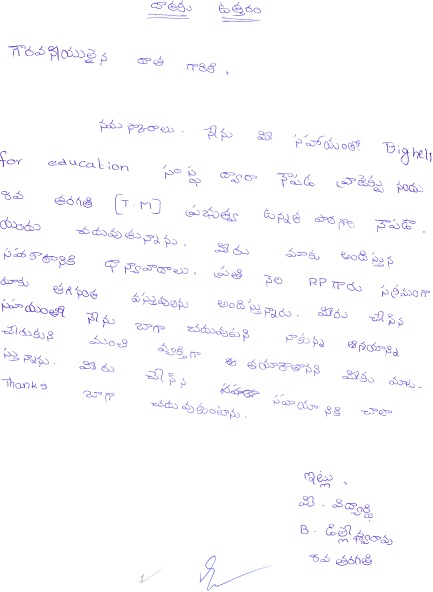 దాతకు ఉత్తరం
గౌరవనీయులైన దాత గారికి,
నమస్కారాలు. నేను మీ సహాయంతో Bighelp
for education సంస్థ ద్వారా నౌపడ నందు
8వ తరగతి [T.M] ప్రభుత్వ ఉన్నత పాఠశాల నౌపడా.
యందు చదువుతున్నాను. మీరు మాకు అందిస్తున్న
సహకారానికి ధన్యవాదాలు. ప్రతి నెల RP గారు సక్రమంగా
మాకు వస్తువులను అందిస్తున్నారు. మీరు చేసిన
సహాయంతో నేను బాగా చదువుకుని నాకున్న ఆశయాన్ని
చేరుకుని మంచి వ్యక్తిగా మీకు మాట-
స్తున్నాను. మీరు చేసిన సహాయానికి చాలా
Thanks బాగా చదువుకుంటాను.
ఇట్లు,
మీ. విద్యార్థి
B. ఢిల్లీశ్వరావు
8వ తరగతి